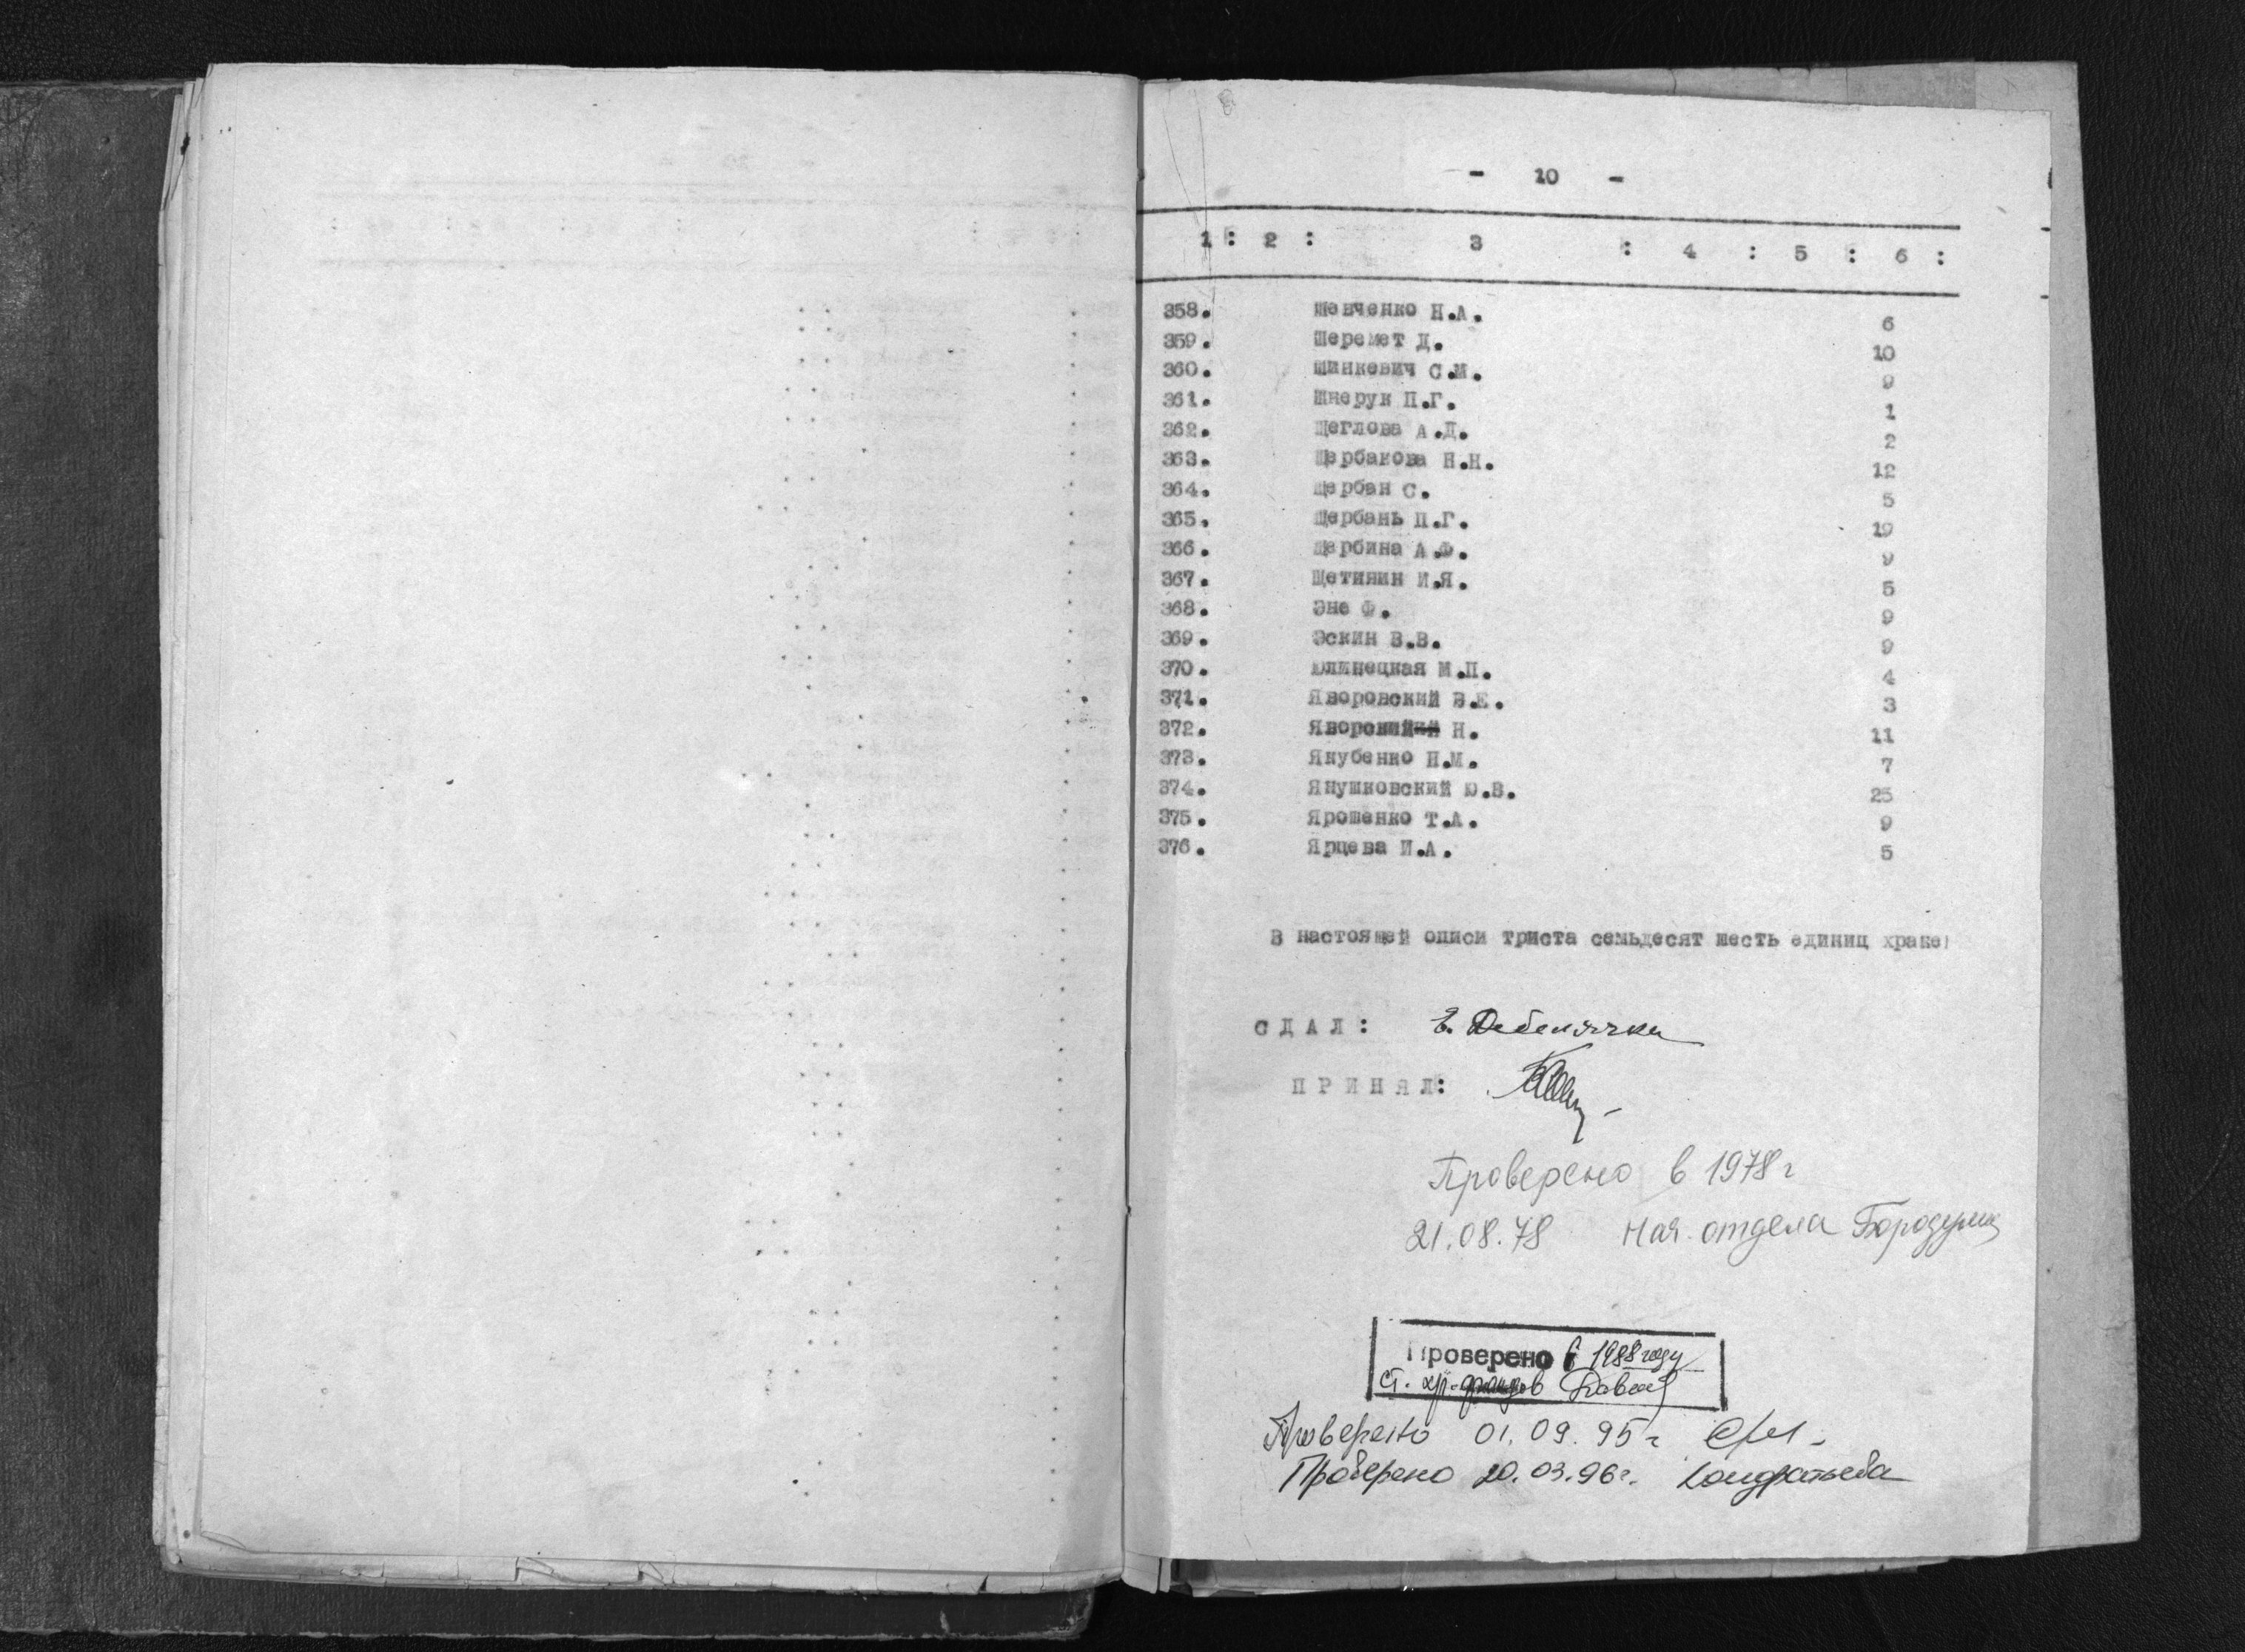 - 10 -
1 : 2 : 3 : 4 : 5 : 6 :
358. Шевченко Н.А. 6
359. Шеремет Д. 10
360. Шинкевич С.М. 9
361. Шнерук П.Г. 1
362. Щеглова А.Д. 2
363. Щербакова Н.Н. 12
364. Щербан С. 5
365. Щербань П.Г. 19
366. Щербина А.Ф. 9
367. Щетинин И.Я. 5
368. Эне Ф. 9
369. Эскин В.В. 9
370. Юлинецкая М.П. 4
371. Яворовский В.Е. 3
372. Н. 11
373. Якубенко Н.М. 7
374. Янушковский Ю.В. 25
375. Ярошенко Т.А. 9
376. Ярцева И.А. 5
В настоящей описи триста семьдесят шесть единиц хране
СДАЛ:
ПРИНЯЛ:
Проверено в 1978 г
21.08.78 Нач. отдела
Проверено в 1988 году
ст. хр. фондов
Проверено 01.09.95 г
Проверено 20.03.96 г. Кондратьева